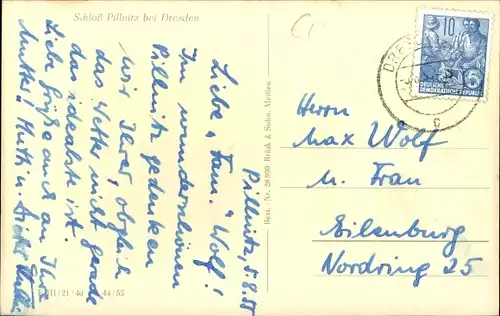 Schloß Pillnitz bei Dresden
Pillnitz, 5.8.58
Liebe Fam. Wolf!
Im wunderschönen
Pillnitz gedenken
wir Ihrer, obgleich
das Wetter nicht gerade
das idealste ist.
Liebe Grüße auch an Ihre
Mutter
Best. Nr. 28/899 Brück & Sohn, Meißen
III/21/40 44/55
10
DEUTSCHE
DEMOKRATISCHE REPUBLIK
DRES
c
Herrn
Max Wolf
u. Frau
Eilenburg
Nordring 25